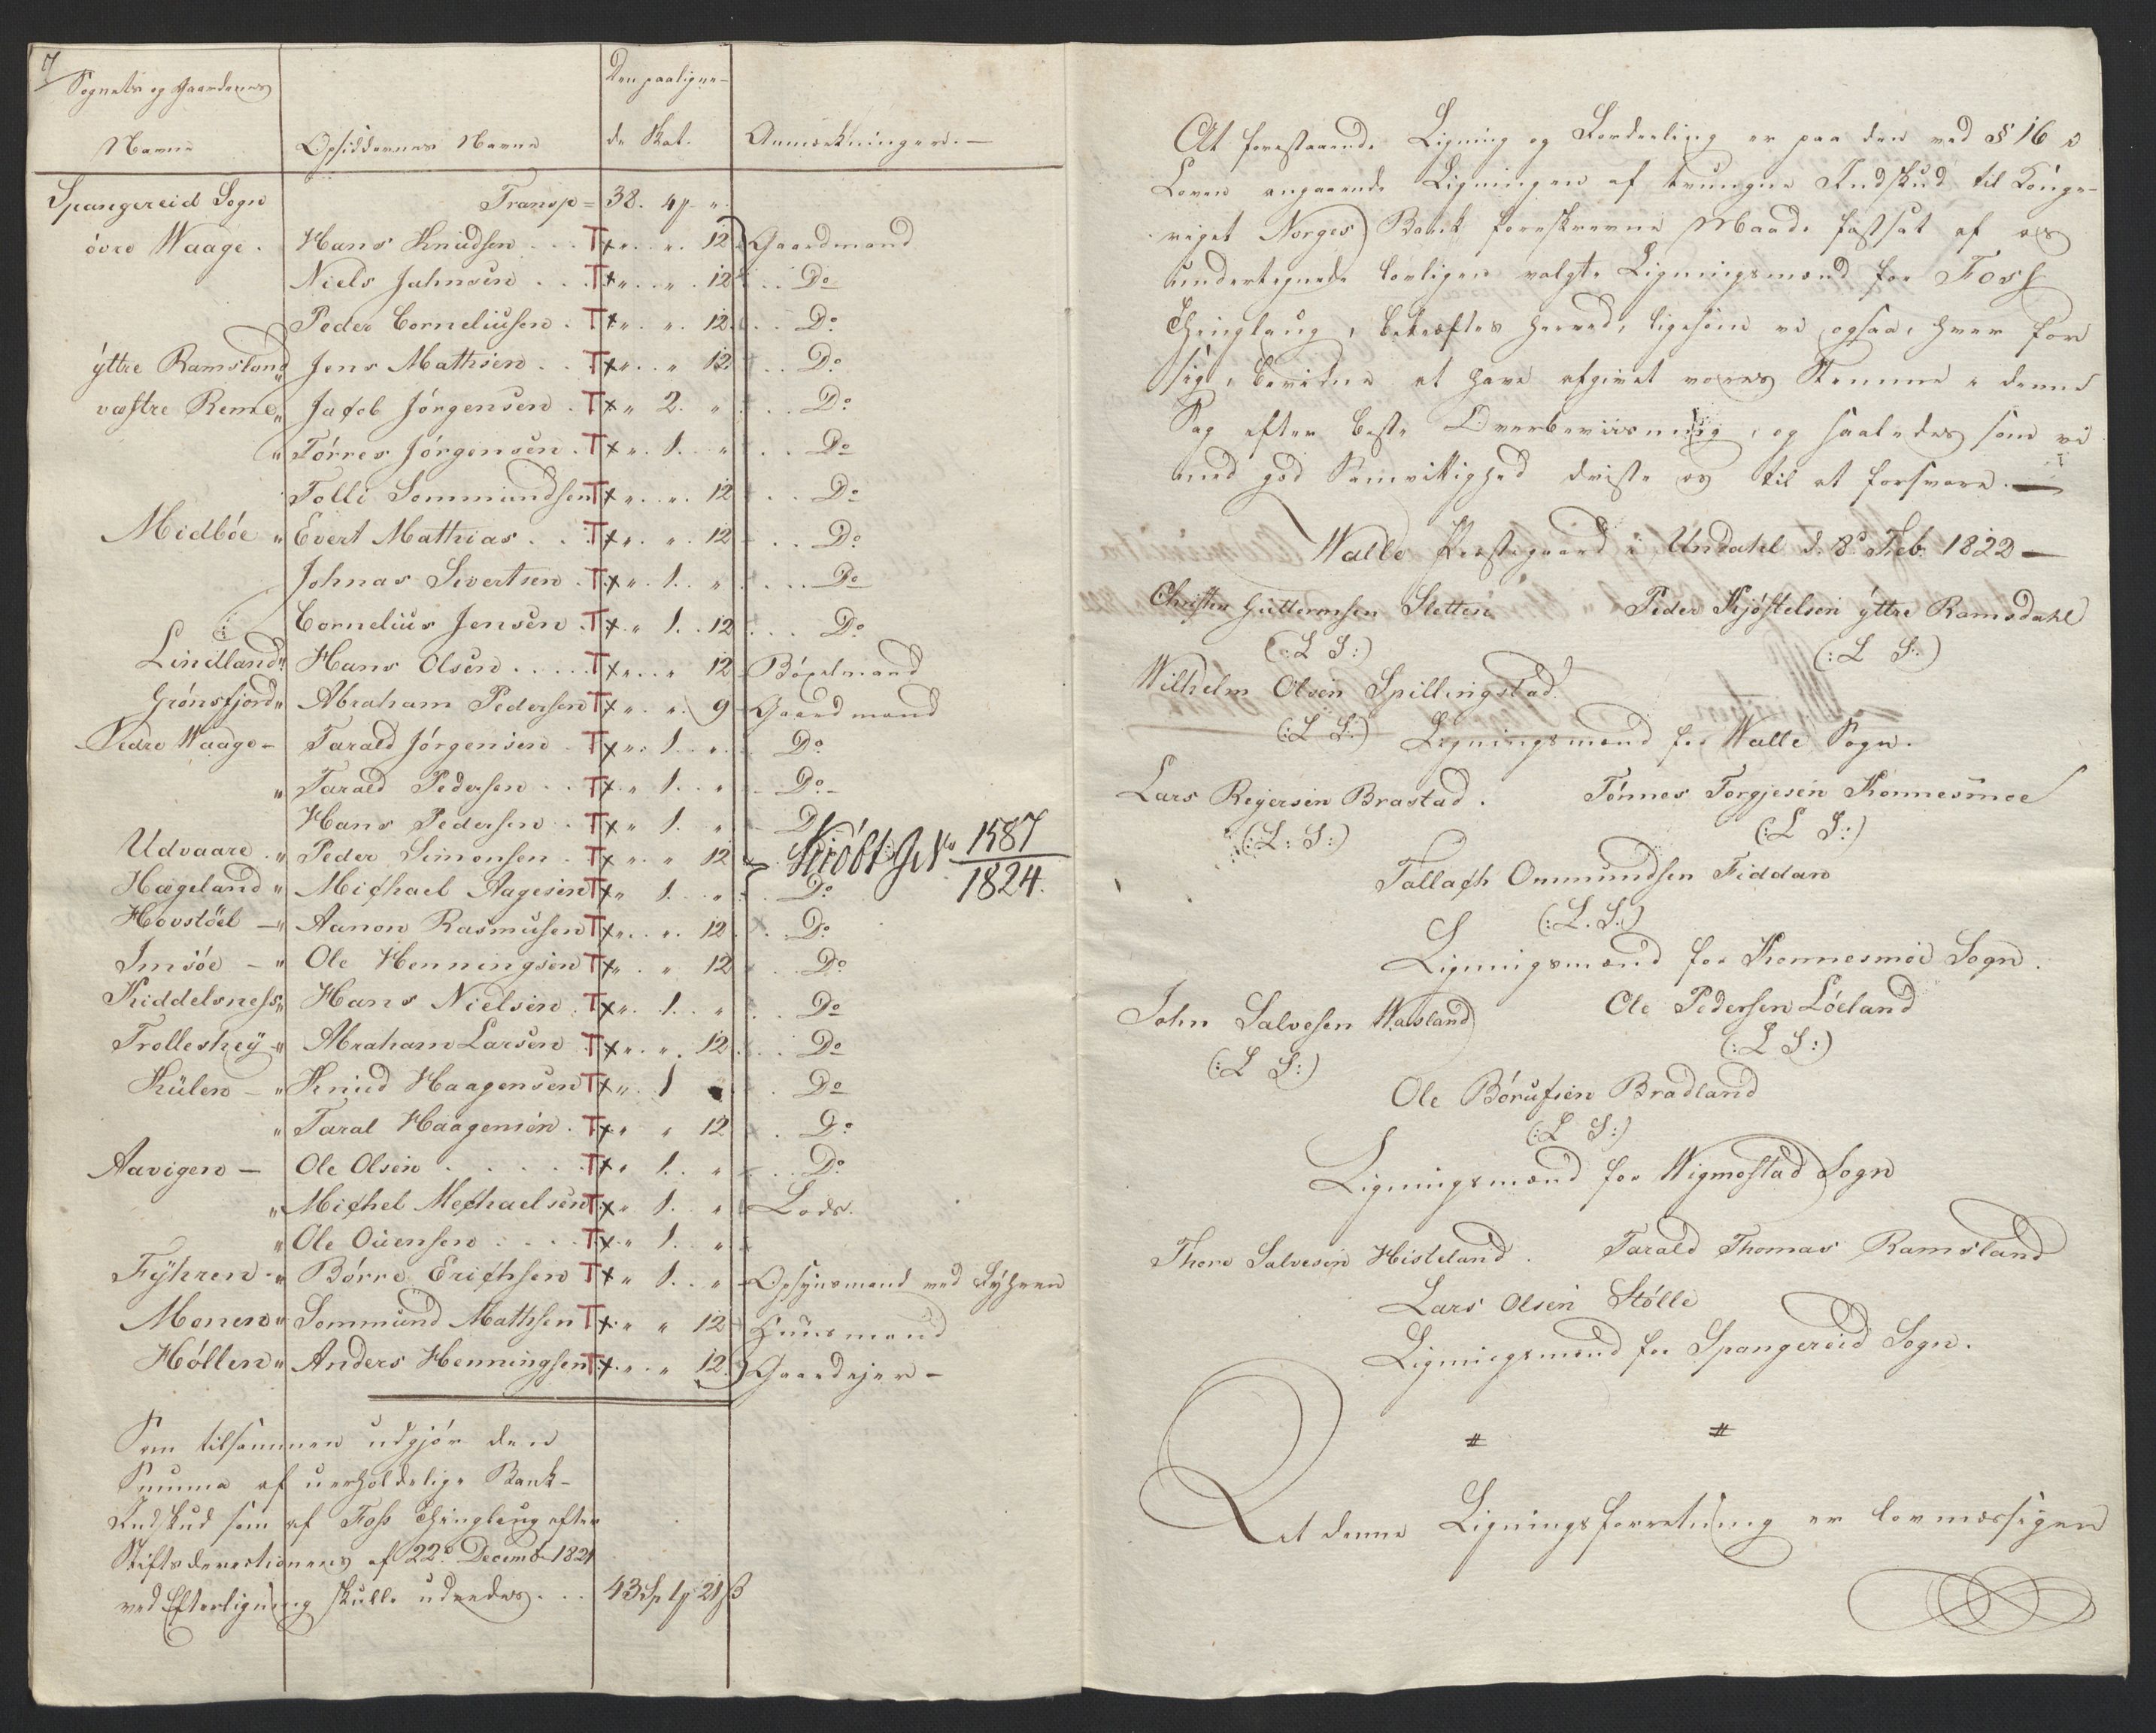 7
Sognets og Gaardenes Navne | Opsiddernes Navne | Den paalignede Skat. | Anmærkninger.—
Spangereid Sogn | Transp = | 38. 4 ".
övre Waage. | Hans Knudsen | T x ". ". 12 | Gaardmand
Niels Jahnsen | T x ". ". 12 | Do
Peder Corneliusen | T x ". ". 12 | Do
ÿttre Ramsland " | Jens Mathisen | T x ". ". 12 | Do
væstre Reme " | Jacob Jörgensen | T x " 2. " | Do
" Törres Jörgensen | T x ". 1. " | Do
Tolli Sommundsen | T x ". ". 12 | Do
Midböe " | Evert Mathias | T x ". ". 12 | Do
Johnas Sivertsen | T x ". 1. " | Do
Cornelius Jensen | T x. " 1. 12 | Do
Lindland " | Hans Olsen | T x ". " 12 | Böxelmand
Grönsfjord " | Abraham Pedersen | T x ". ". 9 | Gaardmand
Nedre Waage – | Tarald Jörgensen | T x ". 1. ". | Do
" Tarald Pedersen | T x. " 1. " | Do
Hans Pedersen | T x " 1. " | D
Udvaare " | Peder Simonsen | T x ". " 12 | Kiöbt 1587/1824.
Hægeland " | Michael Aagesen | T x " 1. " | Do
Hovstöel – " | Aanon Rasmusen | T x ". ". 12 | Do
Imsöe – " | Ole Henningsen | T x ". " 12 | Do
Kiddelsness " | Hans Nielsen | T x ". 1. " | Do
Trolleshey " | Abraham Larsen | T x ". ". 12 | Do
Külen – " | Knud Haagensen | T x ". 1 | Do
" Taral Haagensen | T x " " 12 | Do
Aavigen – | Ole Olsen | T x " 1. " | Do
" Michel Mechaelsen | T x " 1. " | Lods.
" Ole Ouensen | T x " 1. "
Fÿhren " | Börre Erichsen | T x " 1. " | Opsynsmand ved Fÿhren
Monen " | Sommund Mathsen | T x " " 12 | Huusmand
Höllen " | Anders Henningsen | T x ". " 12. | Gaardejer –
Som tilsammen udgjör den
Summa af uerholdelige Bank-
Indskud som af Foss Thinglaug efter
Stiftsdirectionens af 22de Decemb 1821
ved Efterligning skulle udredes... 43 Sp 1 21 ß
At forestaaende Ligning og Fordeeling er paa den ved § 16 i
Loven angaaende Ligningen af tvungne Indskud til Konge-
riget Norges Bank foreskrevne Maade fastsat af os
undertegnede lovligen valgte Ligningsmænd for Foss
Thinglaug, bekræftes herved, ligesom vi ogsaa, hver for
sig, bevidne at have afgivet vores Stemme i denne
Sag efter beste Overbeviisning, og saaledes som vi
med god Samvittighed driste os til at forsvare.—
Walle Præstegaard i Undahl d. 8d Feb. 1822 —
Christen Guttormsen Sletten Peder Kjöstelsen ÿttre Ramsdahl
(: L S :) (: L S :)
Wilhelm Olsen Spillingstad
(: L S :) Ligningsmænd for Walle Sogn.
Lars Reyersen Brastad. Tönnes Torgjesen Konnesmoe
(: L : S :) (: L S :)
Tallach Ommundsen Fiddan
(: L. S :)
Ligningsmænd for Konnesmoe Sogn.
John Salvesen Wasland Ole Pedersen Löeland
(: L S :) (: L S :)
Ole Börufsen Bradland
(: L S :)
Ligningsmænd for Wigmostad Sogn
Thore Salvesen Histeland. Tarald Thomas Ramsland
Lars Olsen Stölle
Ligningsmænd for Spangereid Sogn.
# #
At denne Ligningsforretning er lovmæssigen